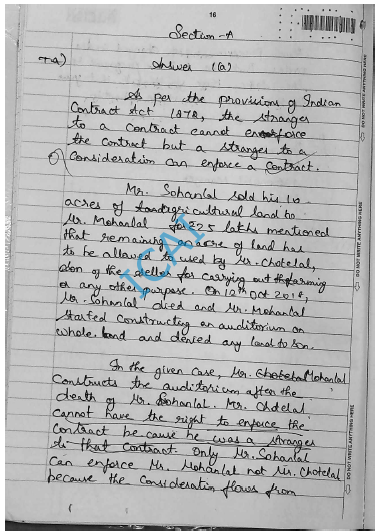 16
Section-A
Answer 1(a)
As per the provisions of Indian
Contract Act 1872, the stranger
to a contract cannot enforce
the contract but a stranger to a
consideration can enforce a contract.
Mr. Sohanlal sold his 10
acres of agricultural land to
Mr. Mohanlal for ₹25 lakhs mentioned
that remaining an acre of land has
to be allowed to used by Mr. Chotelal,
son of the seller for carrying out farming
or any other purpose. On 12th Oct 2018,
Mr. Sohanlal died and Mr. Mohanlal
started constructing an auditorium on
whole land and denied any land to son.
In the given case, Mr. Chotelal Mohanlal
constructs the auditorium after the
death of Mr. Sohanlal. Mr. Chotelal
cannot have the right to enforce the
contract because he was a stranger
to that contract. Only Mr. Sohanlal
can enforce Mr. Mohanlal not Mr. Chotelal
because the consideration flows from
ICAI
DO NOT WRITE ANYTHING HERE
DO NOT WRITE ANYTHING HERE
DO NOT WRITE ANYTHING HERE